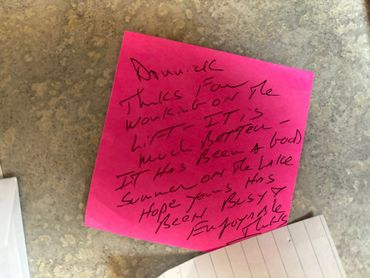 Domnick
Thnks For
Working on The
Lift - It is
much Better -
It Has Been A Good
Summer on The Lake
Hope yours Has
Been Busy &
Enjoyable
Thnks